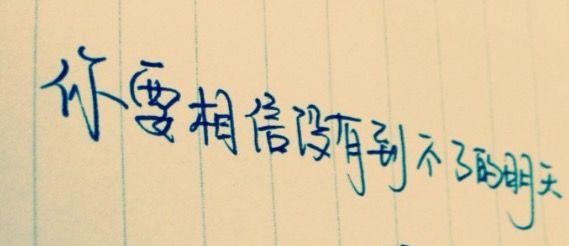 你要相信没有到不了的明天